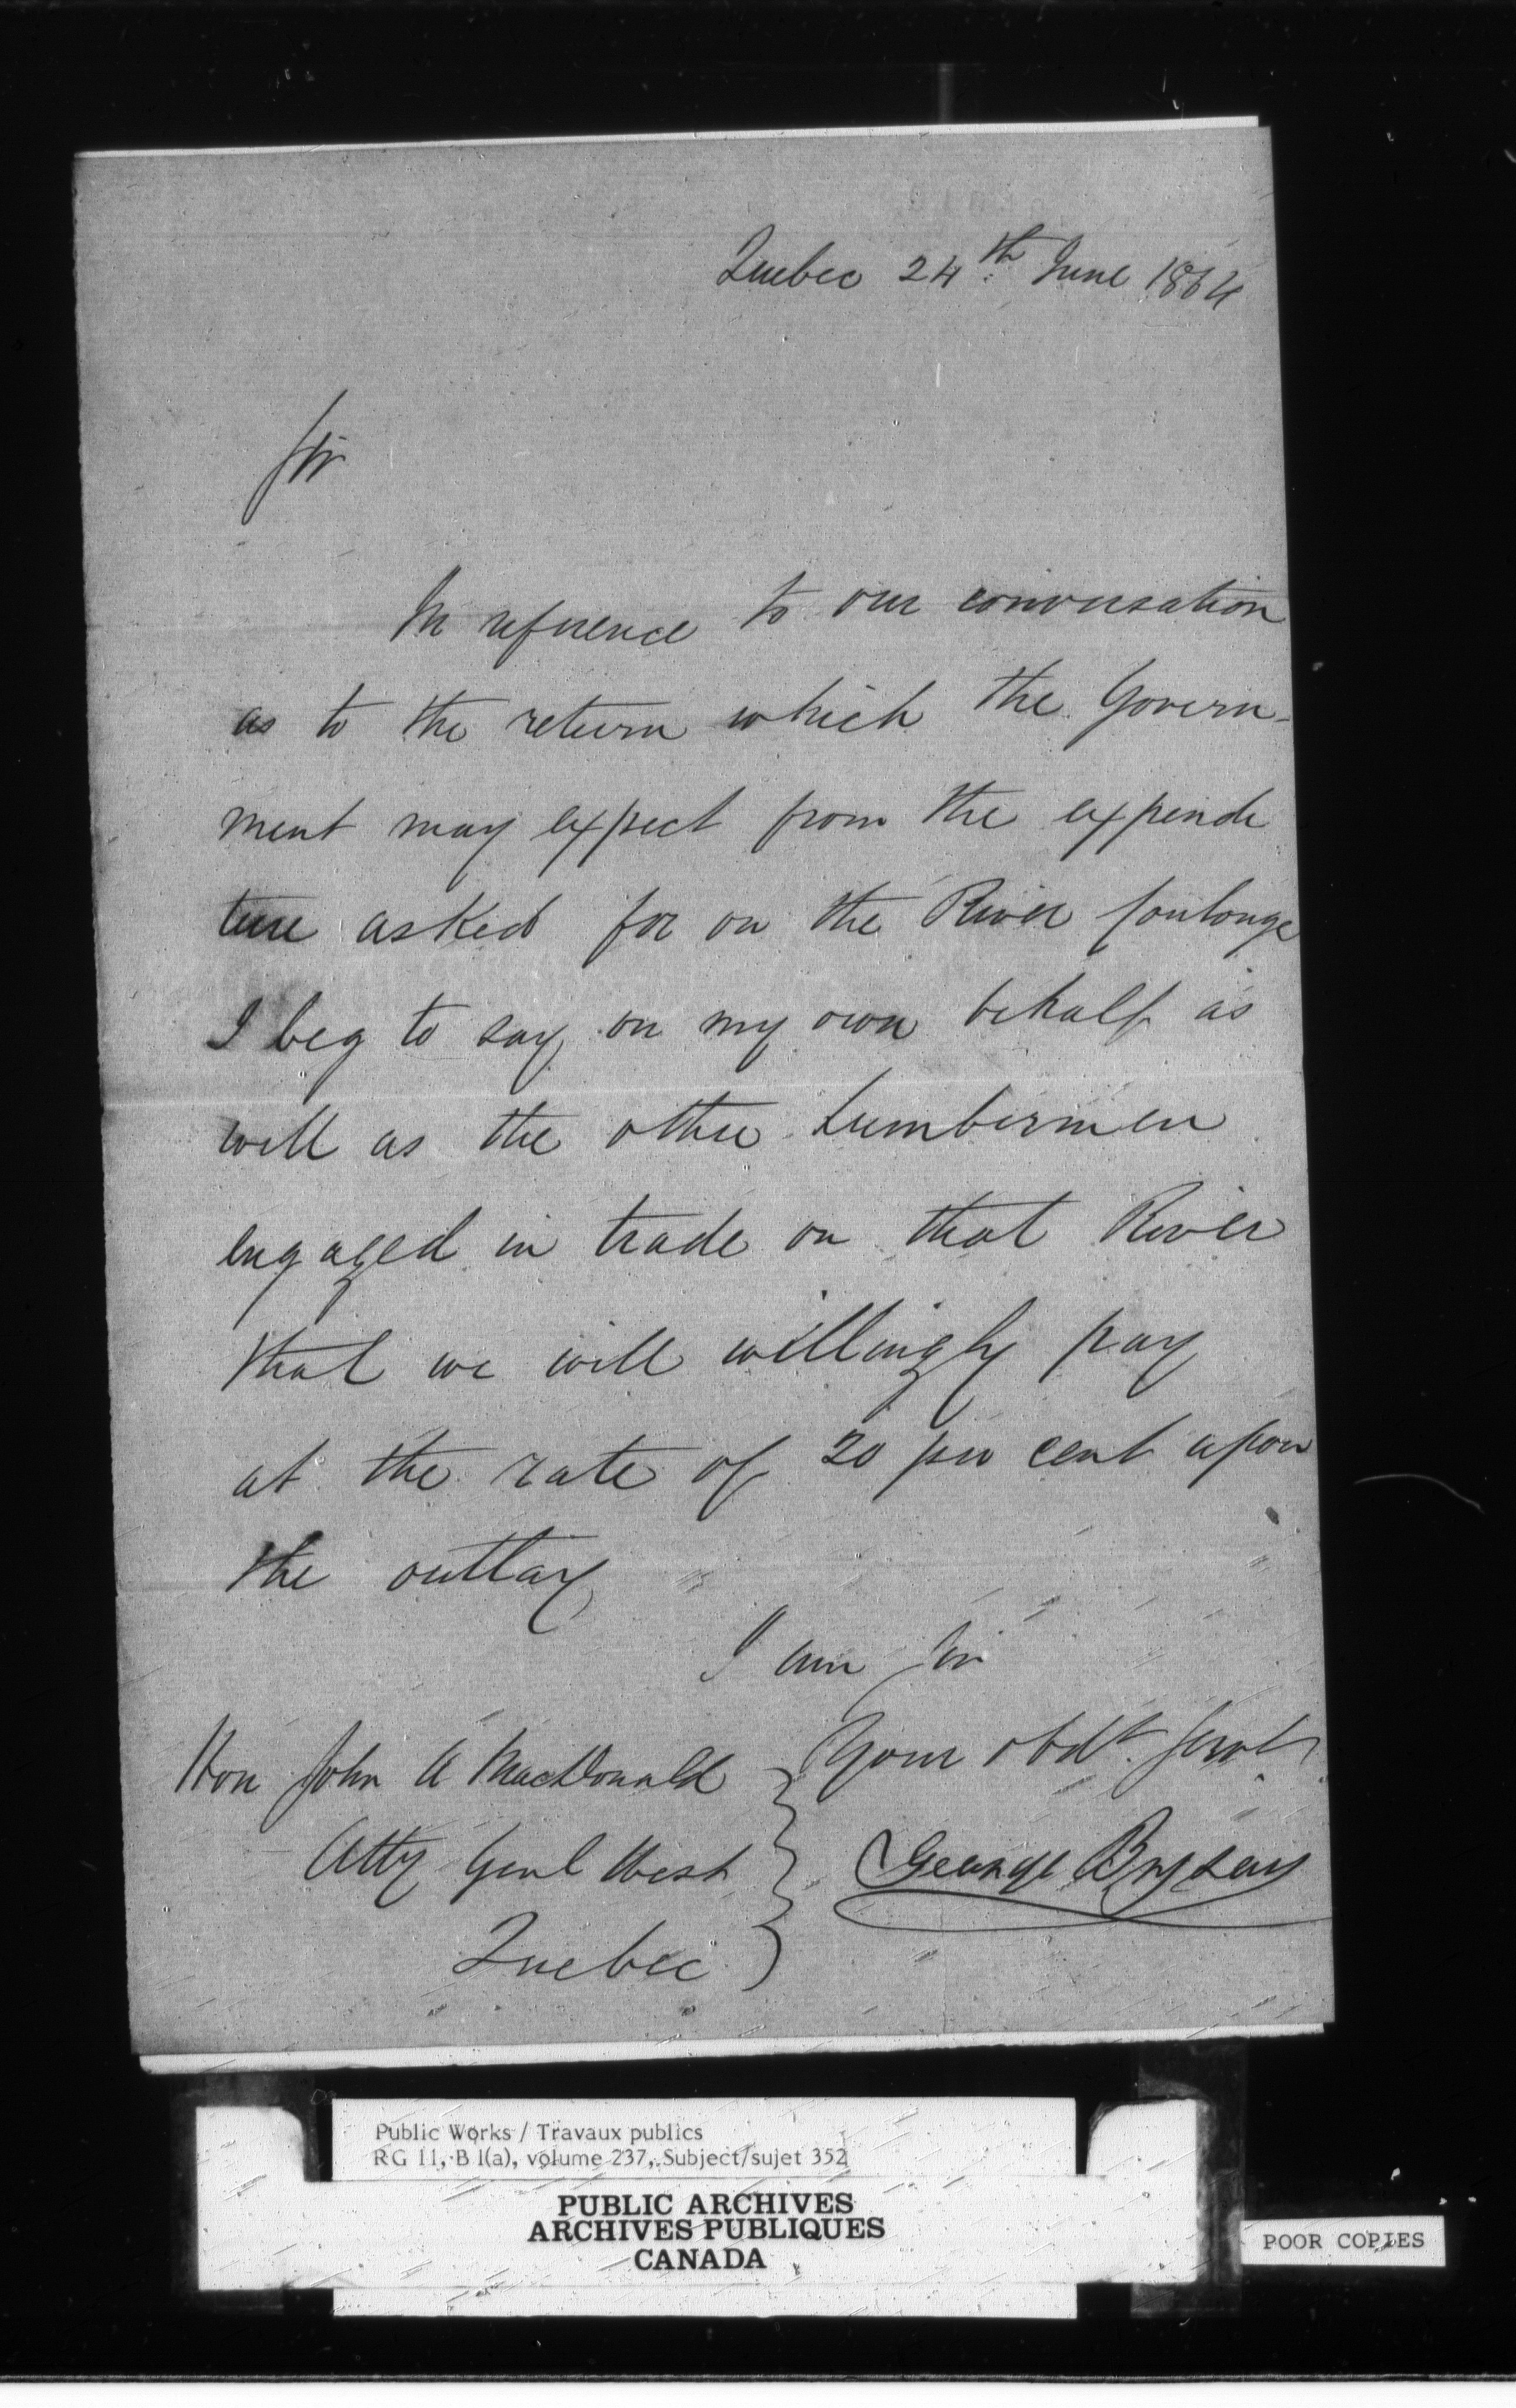 Quebec 24th June 1864
Sir
In reference to our conversation
as to the return which the Govern-
ment may expect from the expendi
ture asked for on the River Coulonge
I beg to say on my own behalf as
well as the other Lumbermen
engaged in trade on that River
that we will willingly pay
at the rate of 20 per cent upon
the outlay
I am Sir
Your obdt. Servt.
George Bryson
Hon John A MacDonald
Atty Genl West
Quebec
Public Works / Travaux publics
RG 11, B 1(a), volume 237, Subject/sujet 352
PUBLIC ARCHIVES
ARCHIVES PUBLIQUES
CANADA
POOR COPIES